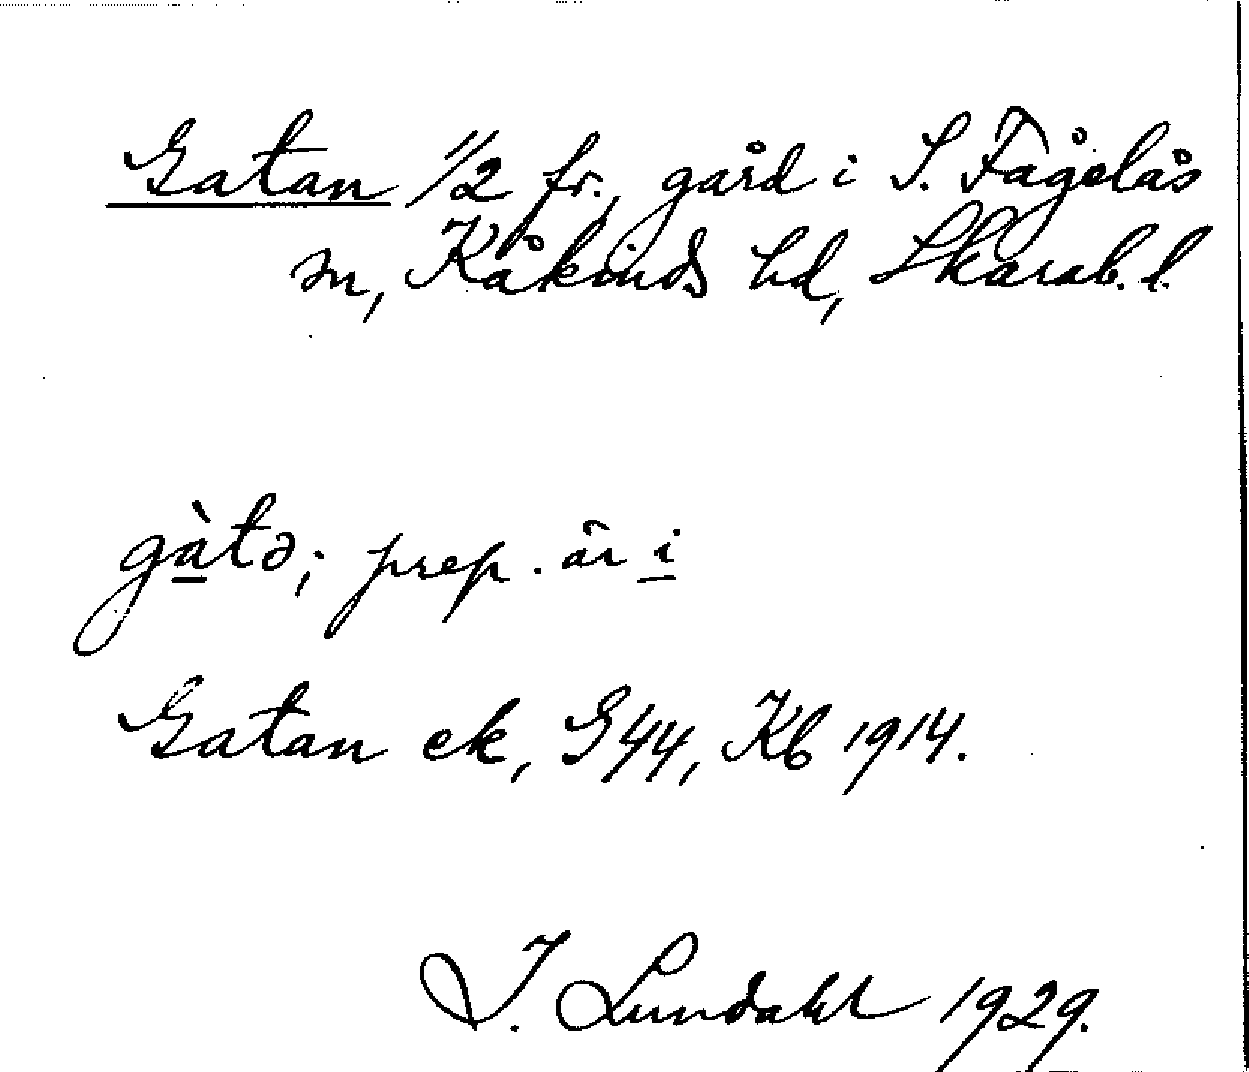 Gatan 1/2 fr., gård i S. Fågelås
sn, Kåkinds hd, Skarab. l.
gàtə; prep. är i
Gatan ek, G44, Kb 1914.
I. Lundahl 1929.